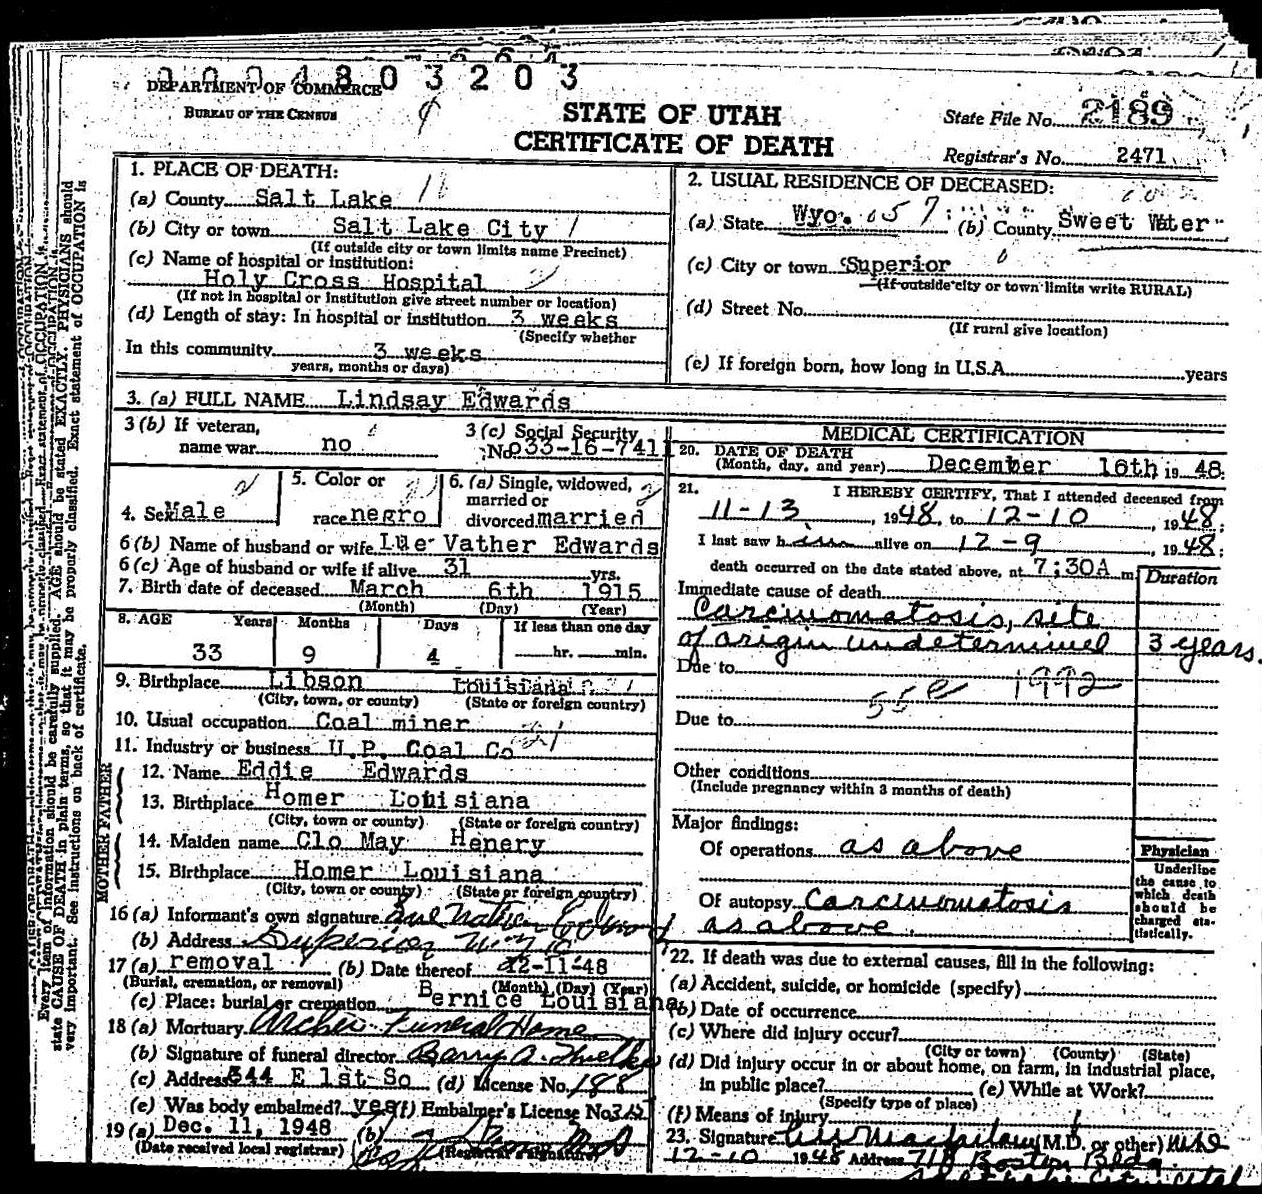 0 0 0 4 8 0 3 2 0 3
DEPARTMENT OF COMMERCE
BUREAU OF THE CENSUS
STATE OF UTAH
CERTIFICATE OF DEATH
State File No. 2189
Registrar's No. 2471
1. PLACE OF DEATH:
(a) County Salt Lake
(b) City or town Salt Lake City
(If outside city or town limits name Precinct)
(c) Name of hospital or institution:
Holy Cross Hospital
(If not in hospital or institution give street number or location)
(d) Length of stay: In hospital or institution 3 weeks
(Specify whether
In this community 3 weeks
years, months or days)
2. USUAL RESIDENCE OF DECEASED:
(a) State Wyo. 057 (b) County Sweet Water
(c) City or town Superior
(If outside city or town limits write RURAL)
(d) Street No.
(If rural give location)
(e) If foreign born, how long in U.S.A. years
3. (a) FULL NAME Lindsay Edwards
3 (b) If veteran,
name war no
3 (c) Social Security
No. 033-16-7411
4. Sex Male
5. Color or
race negro
6. (a) Single, widowed,
married or
divorced married
6 (b) Name of husband or wife Lue Vather Edwards
6 (c) Age of husband or wife if alive 31 yrs.
7. Birth date of deceased March 6th 1915
(Month) (Day) (Year)
8. AGE Years Months Days If less than one day
33 9 4 hr. min.
9. Birthplace Libson Louisiana
(City, town, or county) (State or foreign country)
10. Usual occupation Coal miner
11. Industry or business U.P. Coal Co
FATHER
12. Name Eddie Edwards
13. Birthplace Homer Louisiana
(City, town or county) (State or foreign country)
MOTHER
14. Maiden name Clo May Henery
15. Birthplace Homer Louisiana
(City, town or county) (State or foreign country)
16 (a) Informant's own signature
(b) Address Superior
17 (a) removal (b) Date thereof 12-11-48
(Burial, cremation, or removal) (Month) (Day) (Year)
(c) Place: burial or cremation Bernice Louisiana
18 (a) Mortuary Archer Funeral Home
(b) Signature of funeral director Barry A.
(c) Address 344 E 1st So (d) License No. 188
(e) Was body embalmed? yes (f) Embalmer's License No. 325
19 (a) Dec. 11, 1948 (b)
(Date received local registrar) (Registrar's signature)
MEDICAL CERTIFICATION
20. DATE OF DEATH
(Month, day, and year) December 10th, 1948.
21. I HEREBY CERTIFY, That I attended deceased from
11-13, 1948, to 12-10, 1948;
I last saw him alive on 12-9, 1948;
death occurred on the date stated above, at 7:30A m.
Duration
Immediate cause of death
Carcinomatosis, site
of origin undetermined 3 years.
Due to
55e 1992
Due to
Other conditions
(Include pregnancy within 3 months of death)
Major findings:
Of operations as above
Of autopsy Carcinomatosis
as above.
Physician
Underline
the cause to
which death
should be
charged sta-
tistically.
22. If death was due to external causes, fill in the following:
(a) Accident, suicide, or homicide (specify)
(b) Date of occurrence
(c) Where did injury occur?
(City or town) (County) (State)
(d) Did injury occur in or about home, on farm, in industrial place,
in public place? (e) While at Work?
(Specify type of place)
(f) Means of injury
23. Signature (M.D. or other) MD
12-10 1948 Address 718 Boston Bldg.
Every item of information should be carefully supplied. AGE should be stated EXACTLY. PHYSICIANS should
state CAUSE OF DEATH in plain terms, so that it may be properly classified. Exact statement of OCCUPATION is
very important. See instructions on back of certificate.